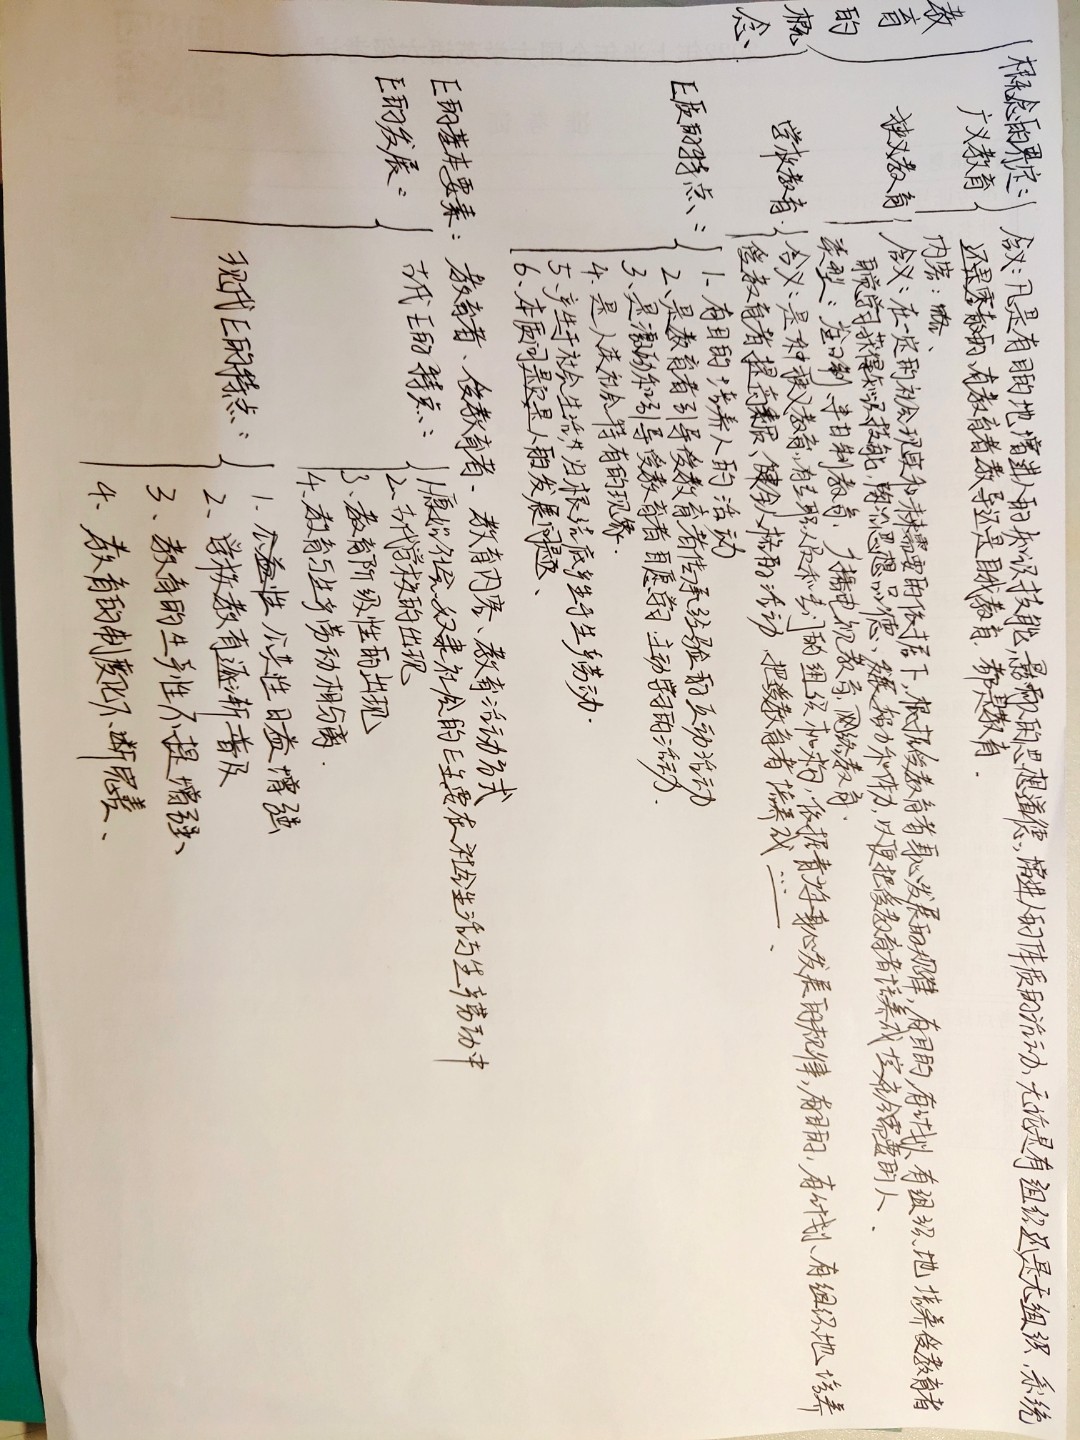 教育的概念
概念的界定：
广义教育
含义：凡是有目的地增进人的知识技能，影响人的思想道德，增进人的体质的活动，无论是有组织还是无组织，系统
还是零散的，有教育者教导还是自我教育，都是教育．
内容：略、
狭义教育
含义：在一定的社会现实和未来需要的依据下，根据受教育者身心发展的规律，有目的有计划、有组织、地培养受教育者
学习获得知识技能，陶冶思想品德、发展智力和体力，以便把受教育者培养成 社会需要的人．
类型：全日制，半日制教育，广播电视教育，网络教育．
学校教育：
含义：是一种狭义教育，有专职人员和专门的组织机构，依据青少年身心发展的规律，有目的，有计划、有组织地培养
受教育者提高素质、健全人格的活动 把受教育者培养成……．
E质的特点：
1．有目的培养人的活动
2、是教育者引导受教育者传承经验的互动活动
3、是激励和引导受教育者自愿学习主动学习的活动．
4．是人类社会特有的现象．
5．产生于社会生活并归根结底产生于生产劳动．
6、本质问题是人的发展问题、
E的基本要素：教育者、受教育者、教育内容、教育活动方式
E的发展：
古代E的特点：
1．原始社会、奴隶社会的E主要在社会生活与生产劳动中
2、古代学校的出现
3、教育阶级性的出现
4、教育与生产劳动相分离．
现代E的特点：
1．公益性 公共性日益增强
2、学校教育逐渐普及
3、教育的生产性不 增强、
4、教育的制度化不断完善、